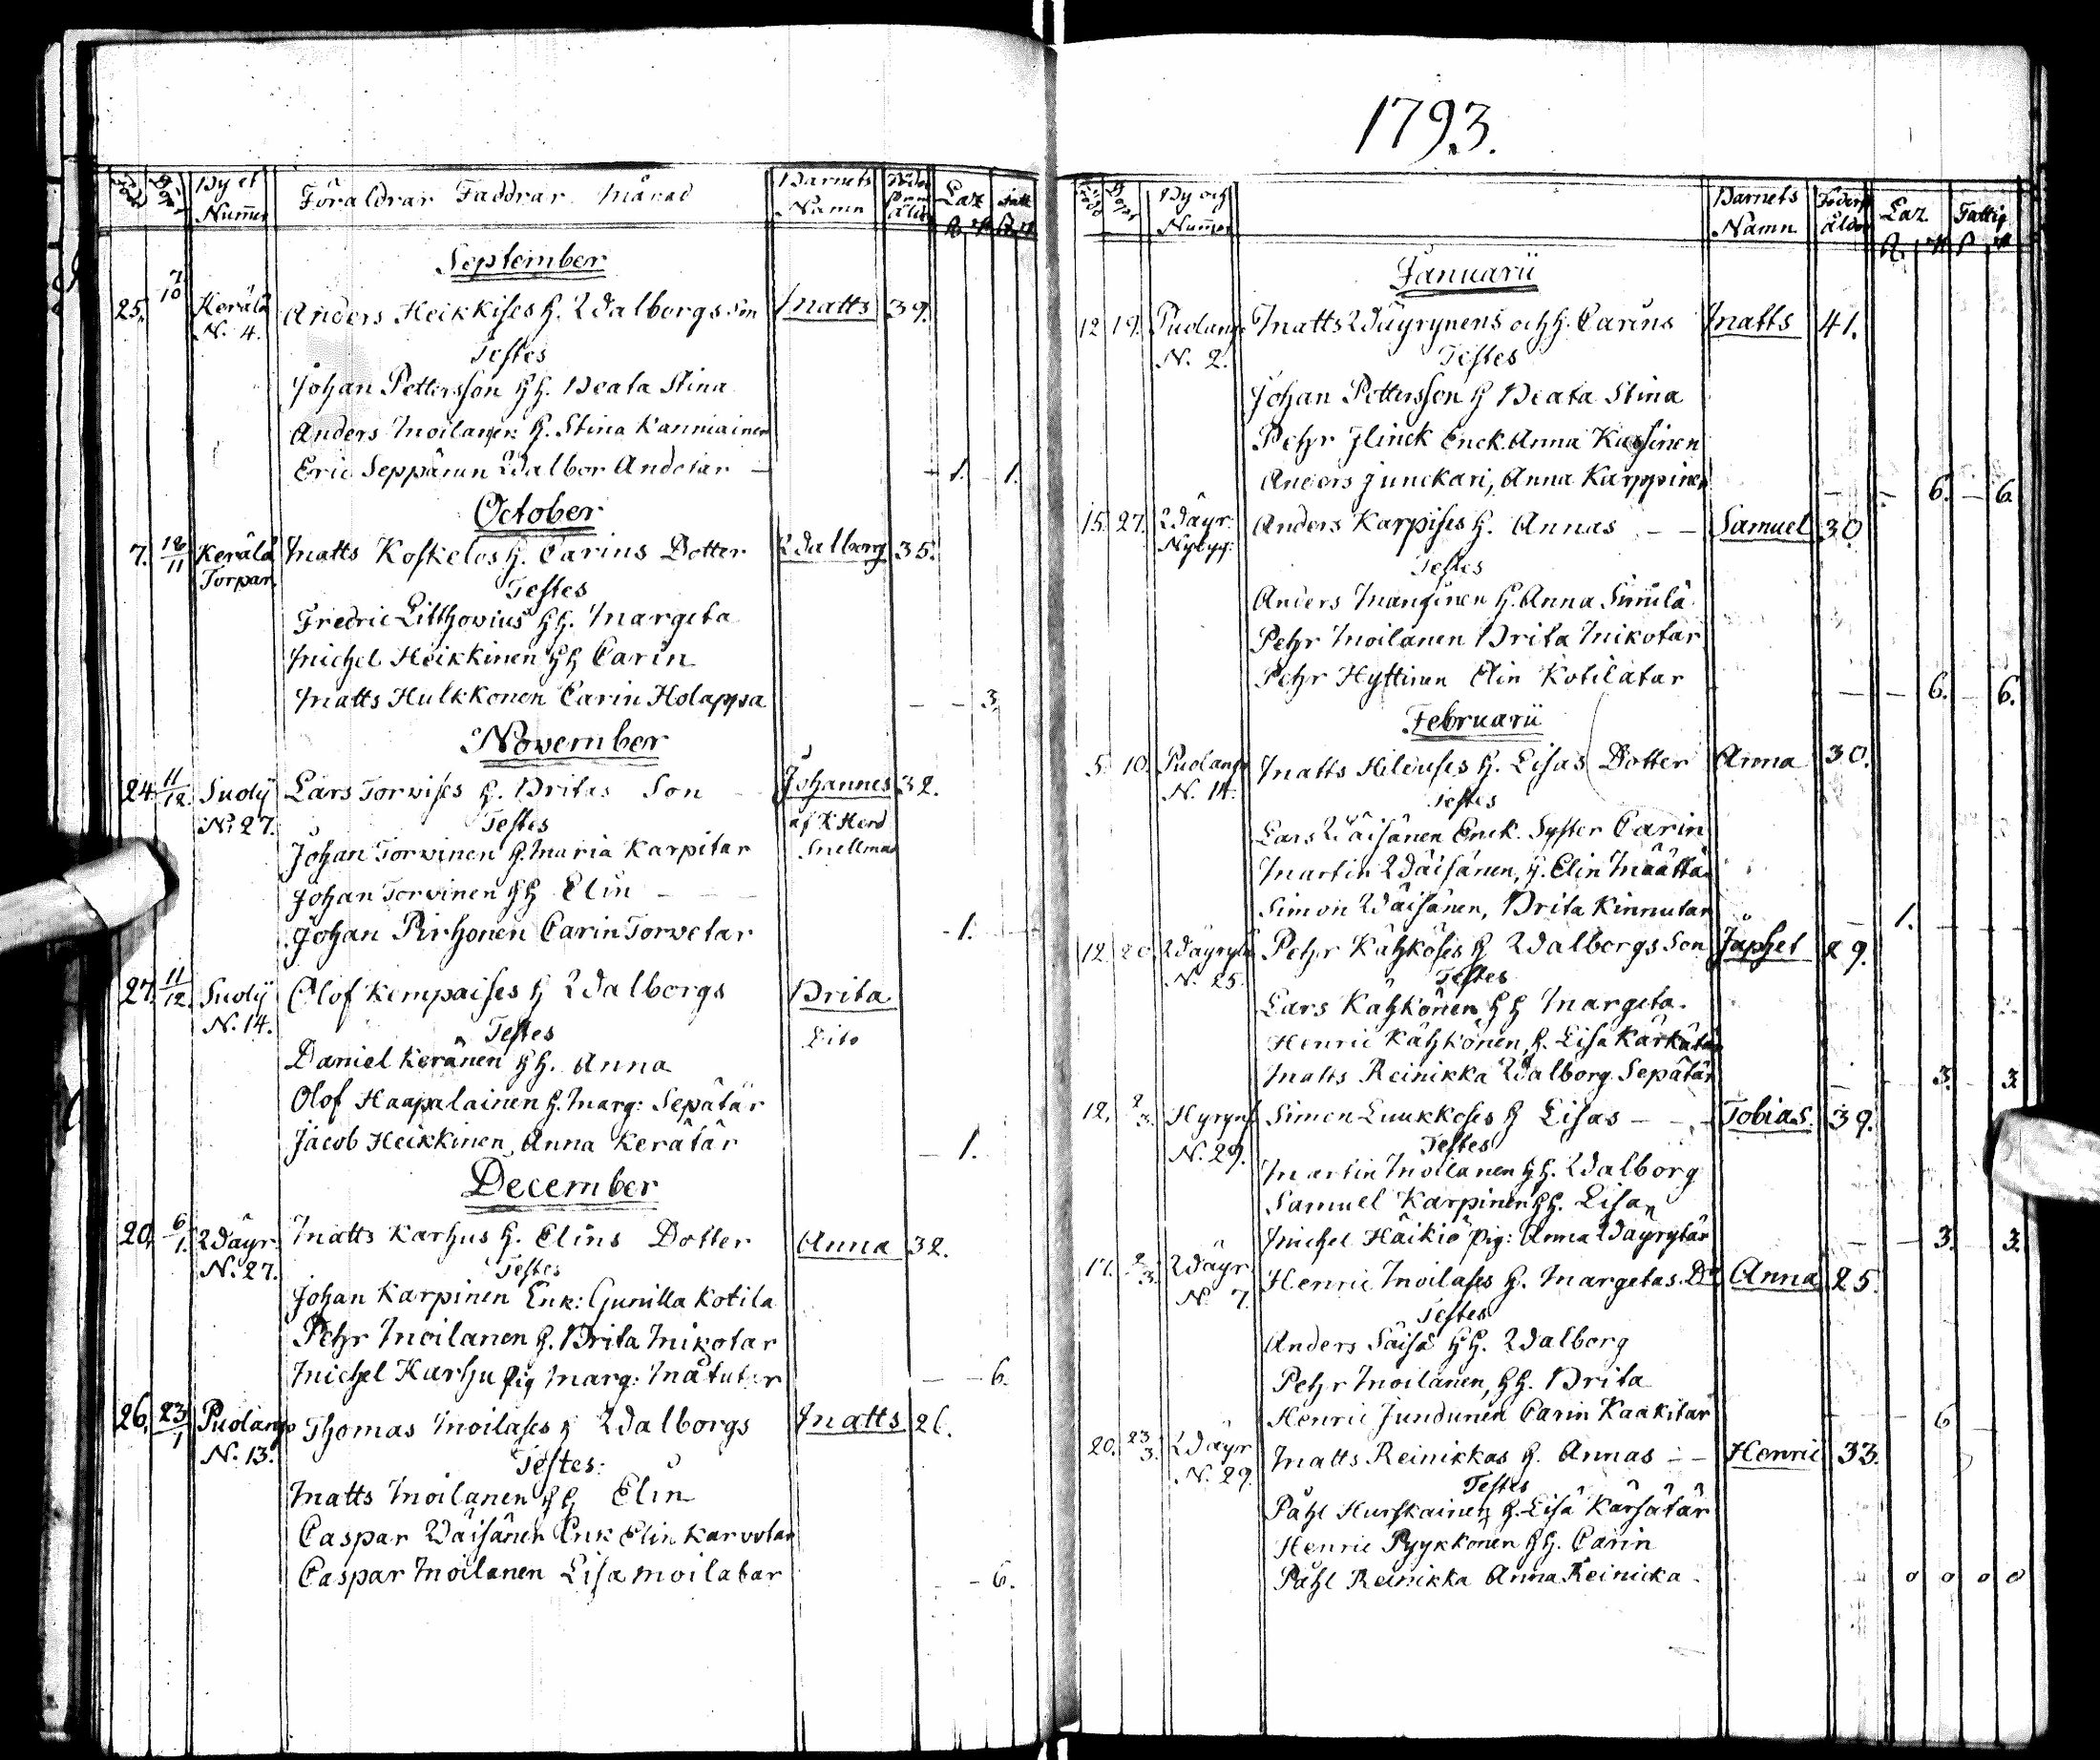 By et Num̄er Föräldrar Faddrar Månad Barnets Namn Laz
September
25. 7/10 Kerälä Anders Heikkises h. Walborgs son Matts 39.
N. 4. Testes
Johan Pettersson hh. Beata Stina
Anders Moilanen h. Stina Kanniainen
Eric Seppänen Walbor Andetar — 1. 1.
October
7. 18/11 Kerälä Matts Koskelos h. Carins Dotter Walborg 35.
Torpar Testes
Fredric Litthovius hh. Margeta
Michel Heikkinen hh Carin
Matts Hulkkonen Carin Holappa — — 3.
November
24. 11/12. Suoly Lars Torvises h. Britas Son Johannes 32.
N. 27. Testes af K Herd
Johan Torvinen h. Maria Karpitar Snellman
Johan Torvinen hh Elin — —
Johan Pirhonen Carin Torvetar - 1.
27. 11/12. Suoly Olof Kempaises h Walborgs Brita
N. 14. Testes Dito
Daniel Keränen hh. Anna
Olof Haapalainen h. Marg: Sepätär
Jacob Heikkinen, Anna Kerätär — 1.
December
20. 6/1. Wäyr. Matts Karhus h. Elins Dotter Anna 32.
N. 27. Testes
Johan Karpinen Enk: Gunilla Kotila
Pehr Moilanen h. Brita Mikotar
Michel Karhu pig Marg: — — 6.
26. 23/1 Puolango Thomas Moilases h Walborgs Matts 26.
N. 13. Testes:
Matts Moilanen hh Elin
Caspar Wäisänen Enk Elin Karvotar
Caspar Moilanen Lisa Moilatar - - 6.
1793.
By och Num̄er Barnets Namn Föders Ålder Laz Fattig
Januarii
12 19. Puolango Matts Wäyrynens och h. Carins Matts 41.
N. 2. Testes
Johan Pettersson h Beata Stina
Pehr Flinck Enck. Anna
Anders Junckari, Anna Karppinen — — 6. — 6.
15. 27. Wäyr. Anders Karpises h. Annas — — Samuel 30
Nybyg: Testes
Anders Manninen h. Anna Simila
Pehr Moilanen Brita Mikotar
Pehr Hyttinen Elin Kotilatar — — 6. — 6.
Februarii
5. 10. Puolango Matts Hiltuses h. Lisas Dotter Anna 30.
N. 14. Testes
Lars Wäisänen Enck. Syster Carin
Martin Wäisänen, h. Elin Määttä
Simon Wäisänen, Brita Kinnutar — 1. — —
12. 20 Wäyrylä Pehr Kähköses h Walborgs Son Japhet 29.
N. 25. Testes
Lars Kähkönen hh Margeta.
Henric Kähkönen, h. Lisa
Matts Reinikka Walborg Sepätär — — 3. — 3
12. 2/3. Hyryns Simon Luukkoses h Lisas — — Tobias. 39.
N. 29. Testes
Martin Moilanen hh. Walborg
Samuel Karpinen hh. Lisa
Michel Häikiö Pig: Anna Wäyrytär — — 3. 3.
17. 2/3. Wäyr. Henric Moilases h. Margetas. Dr Anna 25.
N. 7. Testes
Anders Säisä hh. Walborg
Pehr Moilanen, hh. Brita
Henric Jundunen Carin Kaakitar — — 6 —
20. 23/3. Wäyr Matts Reinikkas h. Annas — — Henric 33.
N. 29. Testes
Påhl Hurskainen h. Lisa
Henric Pyykkönen hh. Carin
Påhl Reinikka Anna Reinicka. 0 0 0 0